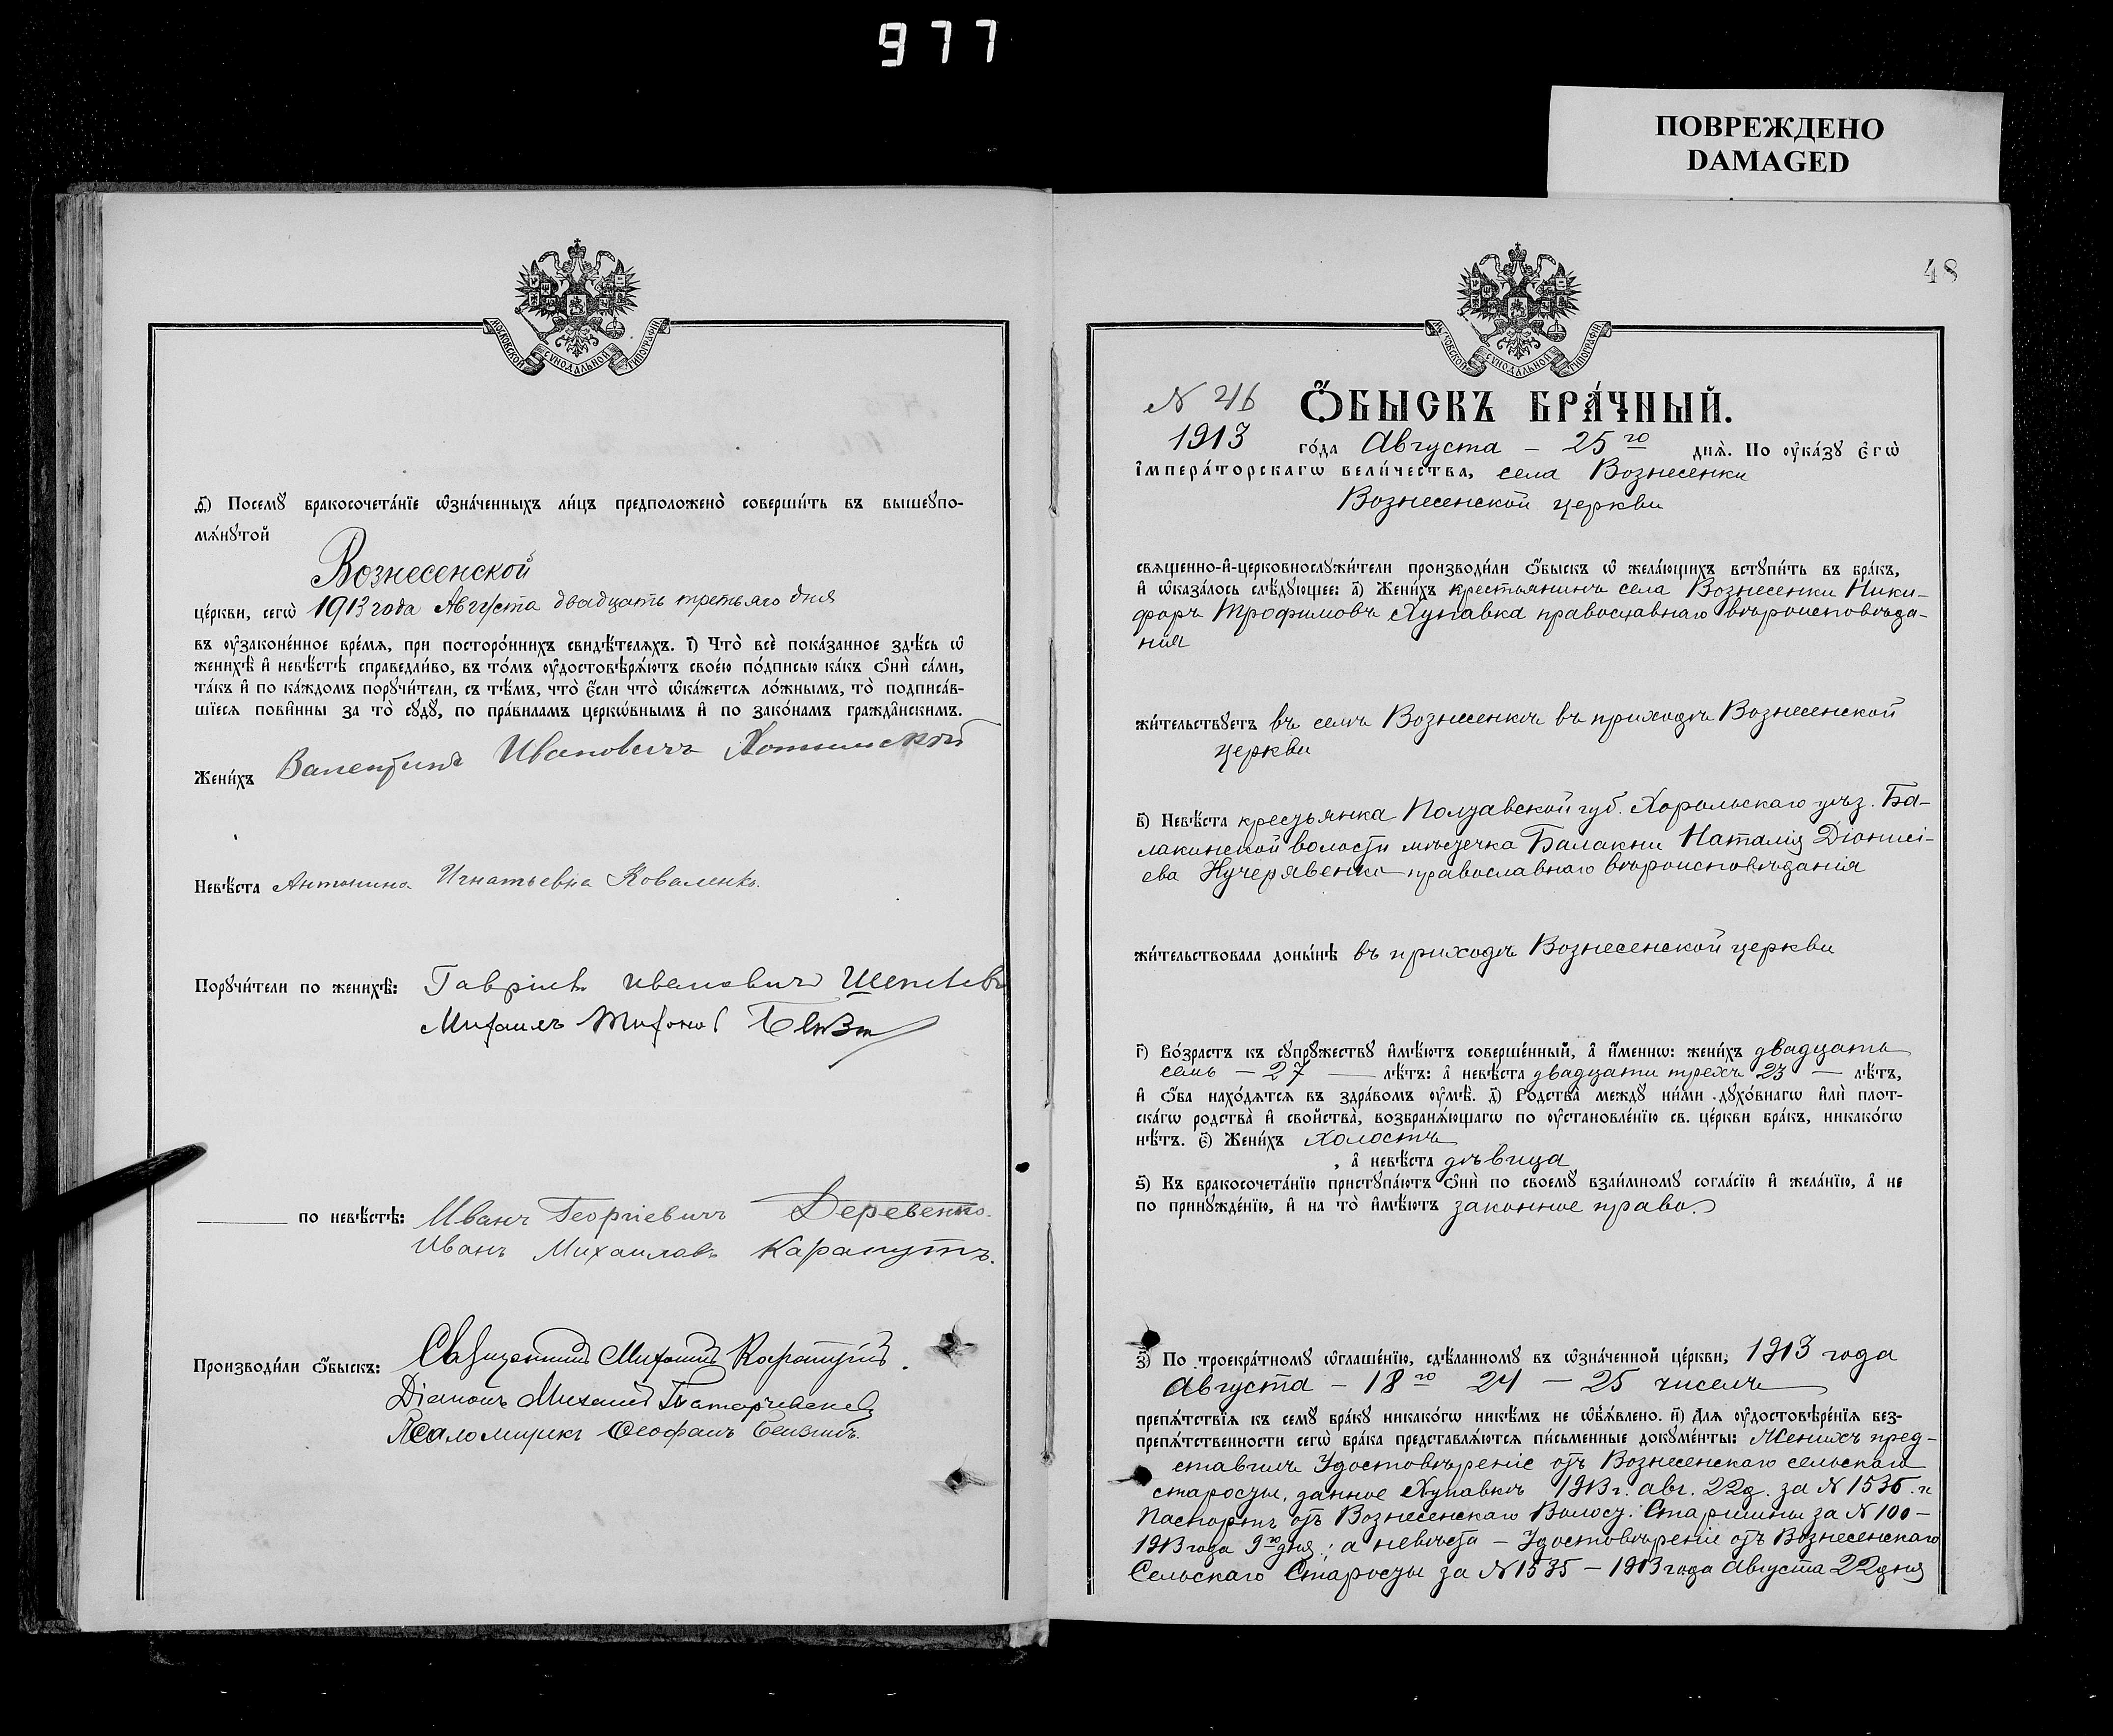 977
ПОВРЕЖДЕНО
DAMAGED
МОСКОВСКОЙ СѴНОДАЛЬНОЙ ТИПОГРАФІИ
д҃) Посемꙋ̀ бракосочета́нїе ѡ҆зна́ченныхъ ли́цъ предположено̀ соверши́ть въ вышеꙋпо-
мѧ́нꙋтой
Вознесенской
це́ркви, сегѡ̀ 1913 года Августа двадцать третьяго дня
въ ᲂу҆законе́нное вре́мѧ, при посторо́ннихъ свидѣ́телѧхъ. і҃) Что̀ всѐ пока́занное здѣ́сь ѡ҆
женихѣ̀ и҆ невѣ́стѣ справедли́во, въ то́мъ ᲂу҆достовѣрѧ́ютъ свое́ю по́дписью ка́къ ѻ҆нѝ са́ми,
та́къ и҆ по ка́ждомъ порꙋчи́тели, съ тѣ́мъ, что̀ є҆́сли что̀ ѡ҆ка́жетсѧ ло́жнымъ, то̀ подписа́в-
шїесѧ пови́нны за то̀ сꙋдꙋ̀, по пра́виламъ церкѡ́внымъ и҆ по зако́намъ гражда́нскимъ.
Жени́хъ Валентинъ Ивановичъ
Невѣ́ста Антонина Игнатьевна Коваленко.
Порꙋчи́тели по женихѣ̀: Гавріилъ Ивановичъ
Михаилъ Тихонов
по невѣ́стѣ: Иванъ Георгіевичъ Деревенко.
Иванъ Михаиловъ Карапутъ.
Производи́ли ѻ҆́быскъ: Священникъ
Діаконъ Михаилъ
Псаломщикъ Ѳеофанъ
48
МОСКОВСКОЙ СѴНОДАЛЬНОЙ ТИПОГРАФІИ
N 46 Ѻ҆́БЫСКЪ БРА́ЧНЫЙ.
1913 го́да Августа – 25 го днѧ̀. По ᲂу҆ка́зꙋ є҆гѡ̀
і҆мпера́торскагѡ вели́чества, села Вознесенки
Вознесенской церкви
свѧще́нно-и҆-церковнослꙋжи́тели производи́ли ѻ҆́быскъ ѡ҆ жела́ющихъ встꙋпи́ть въ бра́къ,
и҆ ѡ҆каза́лось слѣ́дꙋющее: а҃) Жени́хъ крестьянинъ села Вознесенки Ники-
форъ Трофимовъ Хупавка православнаго вѣроисповѣда-
нія
жи́тельствꙋетъ въ селѣ Вознесенкѣ въ приходѣ Вознесенской
церкви
в҃) Невѣ́ста крестьянка Полтавской губ. Хорольскаго уѣз. Ба-
лакинской волости мѣстечка Балакни Наталія Діонисі-
ева Кучерявенко православнаго вѣроисповѣданія
жи́тельствовала доны́нѣ въ приходѣ Вознесенской церкви
г҃) Во́зрастъ къ сꙋпрꙋ́жествꙋ и҆мѣ́ютъ соверше́нный, а҆ и҆́меннѡ: жени́хъ двадцать
семь – 27 — лѣ́тъ: а҆ невѣ́ста двадцати трехъ 23 — лѣ́тъ,
и҆ ѻ҆́ба нахо́дѧтсѧ въ здра́вомъ ᲂу҆мѣ̀. д҃) Родства̀ междꙋ̀ ни́ми дꙋхо́внагѡ и҆лѝ плот-
ска́гѡ родства̀ и҆ свойства̀, возбранѧ́ющагѡ по ᲂу҆становле́нїю св. це́ркви бра́къ, никако́гѡ
нѣ́тъ. є҃) Жени́хъ холостъ
, а҆ невѣ́ста дѣвица
ѕ҃) Къ бракосочета́нїю пристꙋпа́ютъ ѻ҆нѝ по своемꙋ̀ взаи́мномꙋ согла́сїю и҆ жела́нїю, а҆ не
по принꙋжде́нїю, и҆ на то̀ и҆мѣ́ютъ законное право.
з҃) По троекра́тномꙋ ѡ҆глаше́нїю, сдѣ́ланномꙋ въ ѡ҆зна́ченной це́ркви, 1913 года
Августа – 18 го 24 – 25 чиселъ
препѧ́тствїѧ къ семꙋ̀ бра́кꙋ никако́гѡ никѣ́мъ не ѡ҆б̾ѧ́влено. и҃) Длѧ ᲂу҆достовѣре́нїѧ без-
препѧ́тственности сегѡ̀ бра́ка представлѧ́ютсѧ пи́сьменные докꙋме́нты: Женихъ пред-
ставилъ Удостовѣреніе отъ Вознесенскаго сельскаго
старосты, данное Хупавкѣ 1913 г. авг. 22 д. за N 1536. и
Паспортъ отъ Вознесенскаго Волост. Старшины за N 100 –
1913 года 9 го дня; а невѣста – Удостовѣреніе отъ Вознесенскаго
Сельскаго Старосты за N 1535 – 1913 года Августа 22 дня